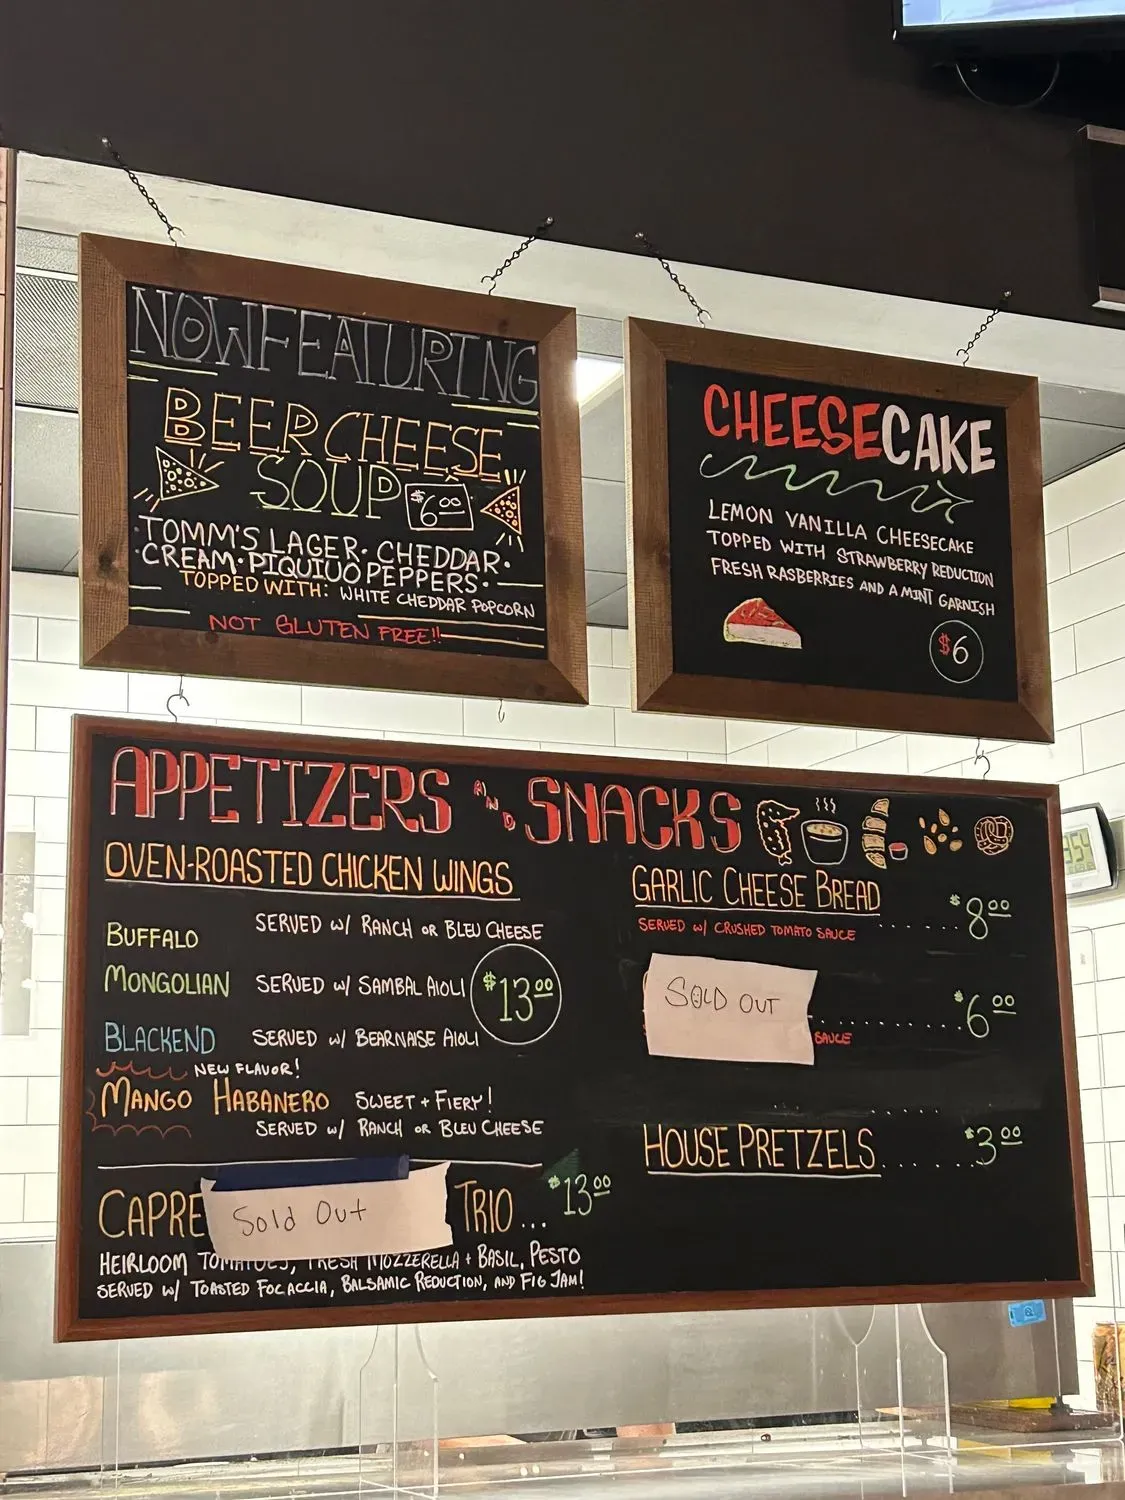 NOW FEATURING
BEER CHEESE
SOUP $6.00
TOMM'S LAGER · CHEDDAR ·
· CREAM · PIQUIUO PEPPERS ·
TOPPED WITH: WHITE CHEDDAR POPCORN
NOT GLUTEN FREE!!
CHEESECAKE
LEMON VANILLA CHEESECAKE
TOPPED WITH STRAWBERRY REDUCTION
FRESH RASBERRIES AND A MINT GARNISH
$6
APPETIZERS AND SNACKS
OVEN-ROASTED CHICKEN WINGS
BUFFALO SERVED W/ RANCH OR BLEU CHEESE
MONGOLIAN SERVED W/ SAMBAL AIOLI
$13.00
BLACKEND SERVED W/ BEARNAISE AIOLI
NEW FLAVOR!
MANGO HABANERO SWEET + FIERY!
SERVED W/ RANCH OR BLEU CHEESE
CAPRE Sold Out TRIO... $13.00
HEIRLOOM TOMATOES, FRESH MOZZERELLA + BASIL, PESTO
SERVED W/ TOASTED FOCACCIA, BALSAMIC REDUCTION, AND FIG JAM!
GARLIC CHEESE BREAD ...... $8.00
SERVED W/ CRUSHED TOMATO SAUCE
SOLD OUT .......... $6.00
SAUCE
HOUSE PRETZELS ...... $3.00